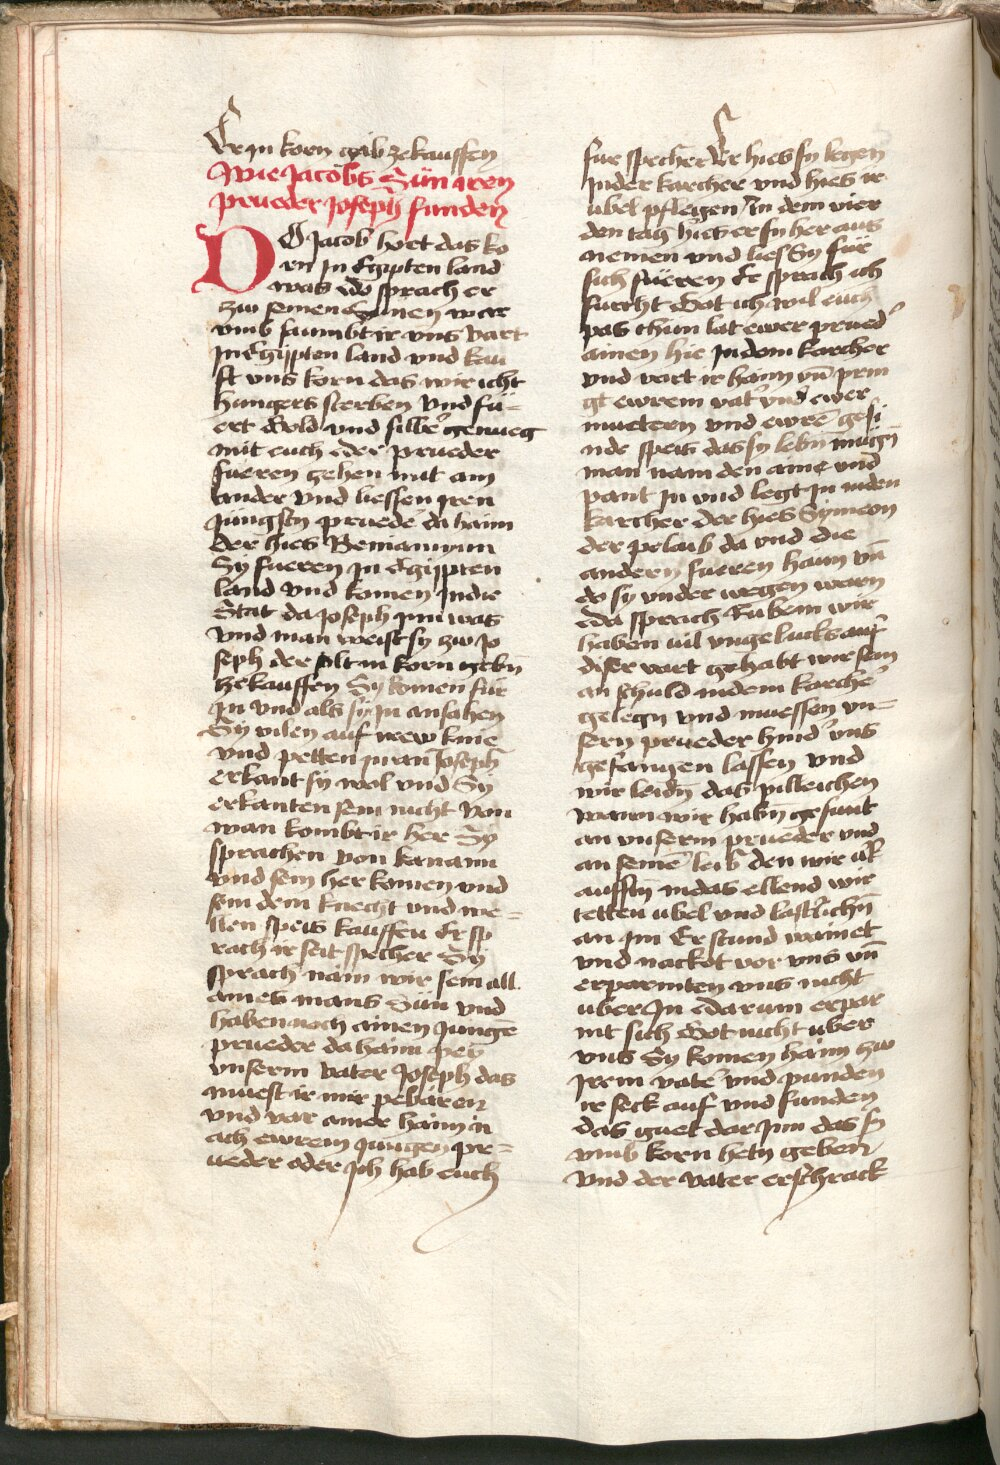 Er in korn gab zekauffen
Wie Jacobs Sün iren
prueder Joseph funden
DO Jacob hort das ko
rn In Egipten land
was do sprach er
zw seinen Sunen war
vmb saumbt ir vns vart
In Egipten land vnd kau
ft vns korn das wir icht
hungers sterben vnd fü-
ert Gold vnd silber genueg
mit euch der prueder
fueren zehen mit ain
ander vnd liessen iren
Jüngsten pruede da haim
der hies Beniamyim
Sy fueren In Egipten
land vnd komen In die
Stat da Joseph inn was
vnd man weist sy zw Jo
seph der solt in korn gebn
zekauffen Sy komen für
in vnd als sy in ansahen
Sy vilen auf irew knie
vnd petten in an Joseph
erkant sy wol vnd Sy
erkanten sein nicht Von
wan kombt ir her Sy
sprachen von kanaan
vnd sein her komen vnd
sein dein knecht vnd we-
llen speis kauffen Er sp
rach ir seit specher Sy
sprach nain wir sein all
aines mans Sün vnd
haben noch ainen Jungē
prueder da haim pey
vnserm vater Joseph das
muest ir mir pebären
vnd var ainer haim n
ach ewrem jungen pr-
ueder oder Ich hab euch
fur specher Er hies sy legen
In der karcher vnd hies ir
übel pflegen In dem vier
den tag hies er sy her aus
nemen vnd lies Sy für
sich füeren Er sprach ich
furcht Got ich wil euch
pas thun lat ewer prued'
ainen hie In dem karcher
vnd vart ir haim vn̄ prin
gt ewrem vat' vnd ewer
muetern vnd ewrē gesi
nde speis das sy lebn mugn
man nam den aine vnd
pant In vnd legt In inden
karcher der hies Symeon
der pelaib da vnd die
andern fueren haim vn̄
do sy vnder wegen warn
da sprach Rubein wir
haben vil vngelucks auf
diser vart gehabt wir sein
an schuld in dem karche'
gelegn vnd muessen vn-
sern prueder hind' vns
gefangen lassen vnd
wir leidn das pilleichen
wann wir habn gesunt
an vnserm prueder vnd
an seinē leib den wir v'k
aufftn in das ellend wir
tetten übel vnd lastlichn
an im Er stund wainet
vnd nackot vor vns vn̄
erparmten vns nicht
über In darum erpar
mt sich Got nicht über
vns Sy komen haim zw
irem vate' vnd punden
ir seck auf vnd funden
das guet dar inn das sy
vmb korn hetn geben
vnd der vater erschrack